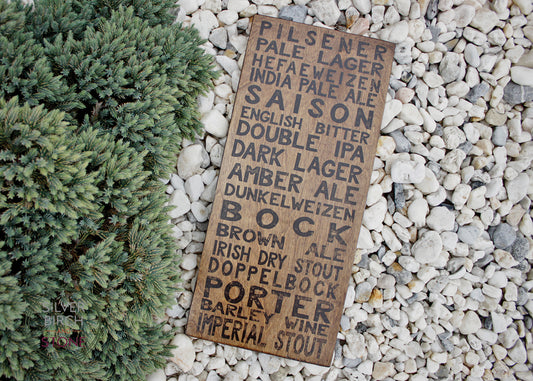 PILSENER
PALE LAGER
HEFAEWEIZEN
INDIA PALE ALE
SAISON
ENGLISH BITTER
DOUBLE IPA
DARK LAGER
AMBER ALE
DUNKELWEIZEN
BOCK
BROWN ALE
IRISH DRY STOUT
DOPPELBOCK
PORTER
BARLEY WINE
IMPERIAL STOUT
SILVER
BIRCH